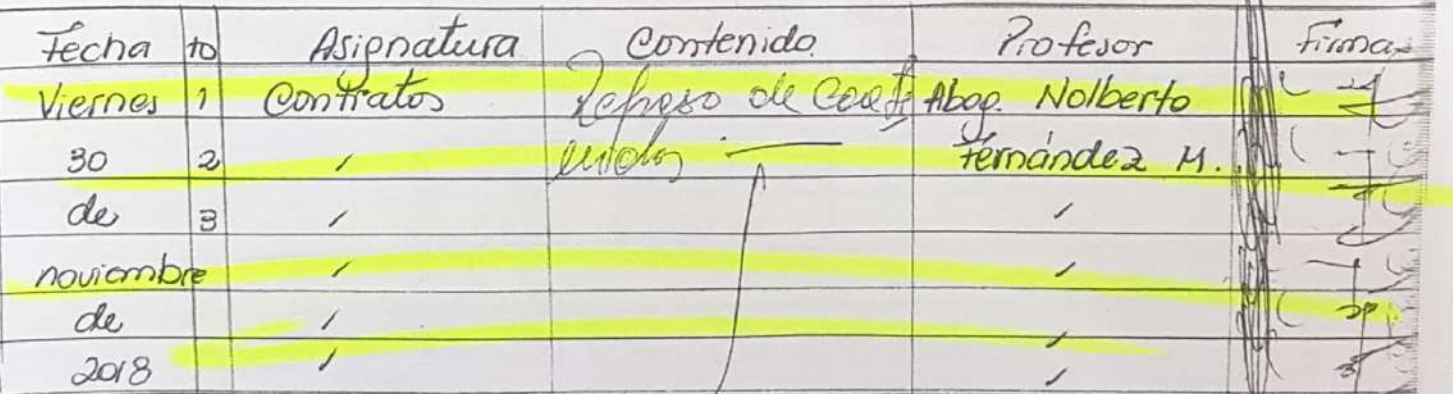 Fecha to Asignatura Contenido Profesor Firma
Viernes 1 Contratos Repaso de Conte Abog. Nolberto
30 2 ′ nidos Fernández M.
de 3 ′ ′
noviembre ′ ′
de ′ ′
2018 ′ ′